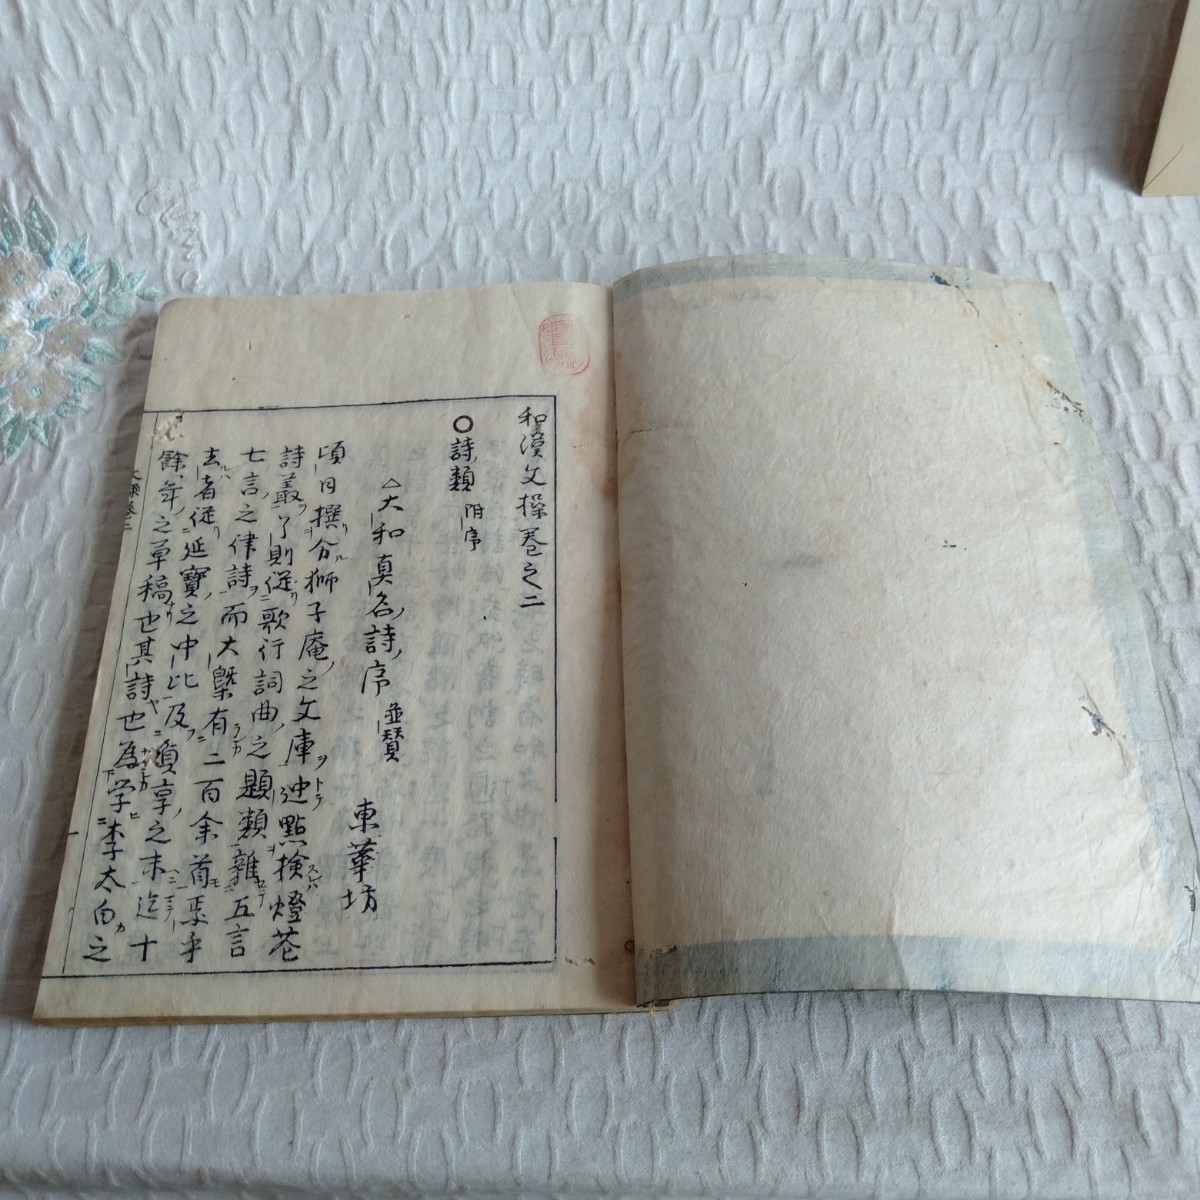 和漢文操巻之二
〇詩類 附序
△大和真名詩序 並賛
東華坊
頃日撰分獅子庵之文庫迚點検燈花
詩叢了則従歌行詞曲之題類雜五言
七言之律詩而大槩有二百余首
去者従延寶之中比及貞享之末迄十
餘年之草稿也其詩也為学李太白之